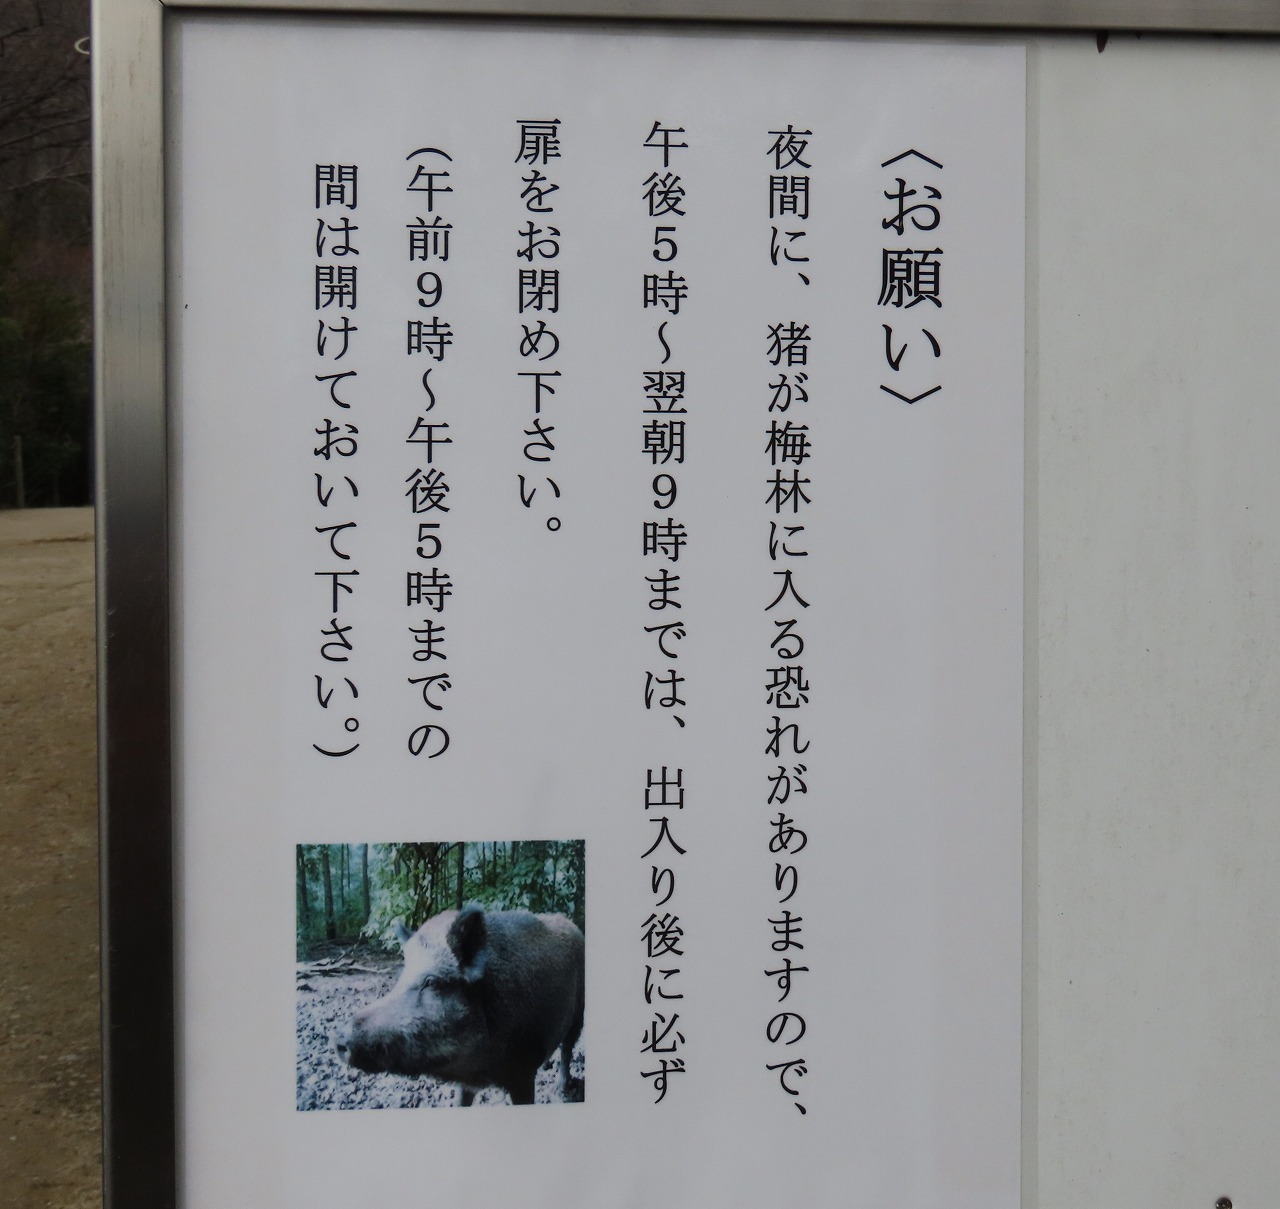 〈お願い〉
夜間に、猪が梅林に入る恐れがありますので、
午後５時～翌朝９時までは、出入り後に必ず
扉をお閉め下さい。
（午前９時～午後５時までの
間は開けておいて下さい。）